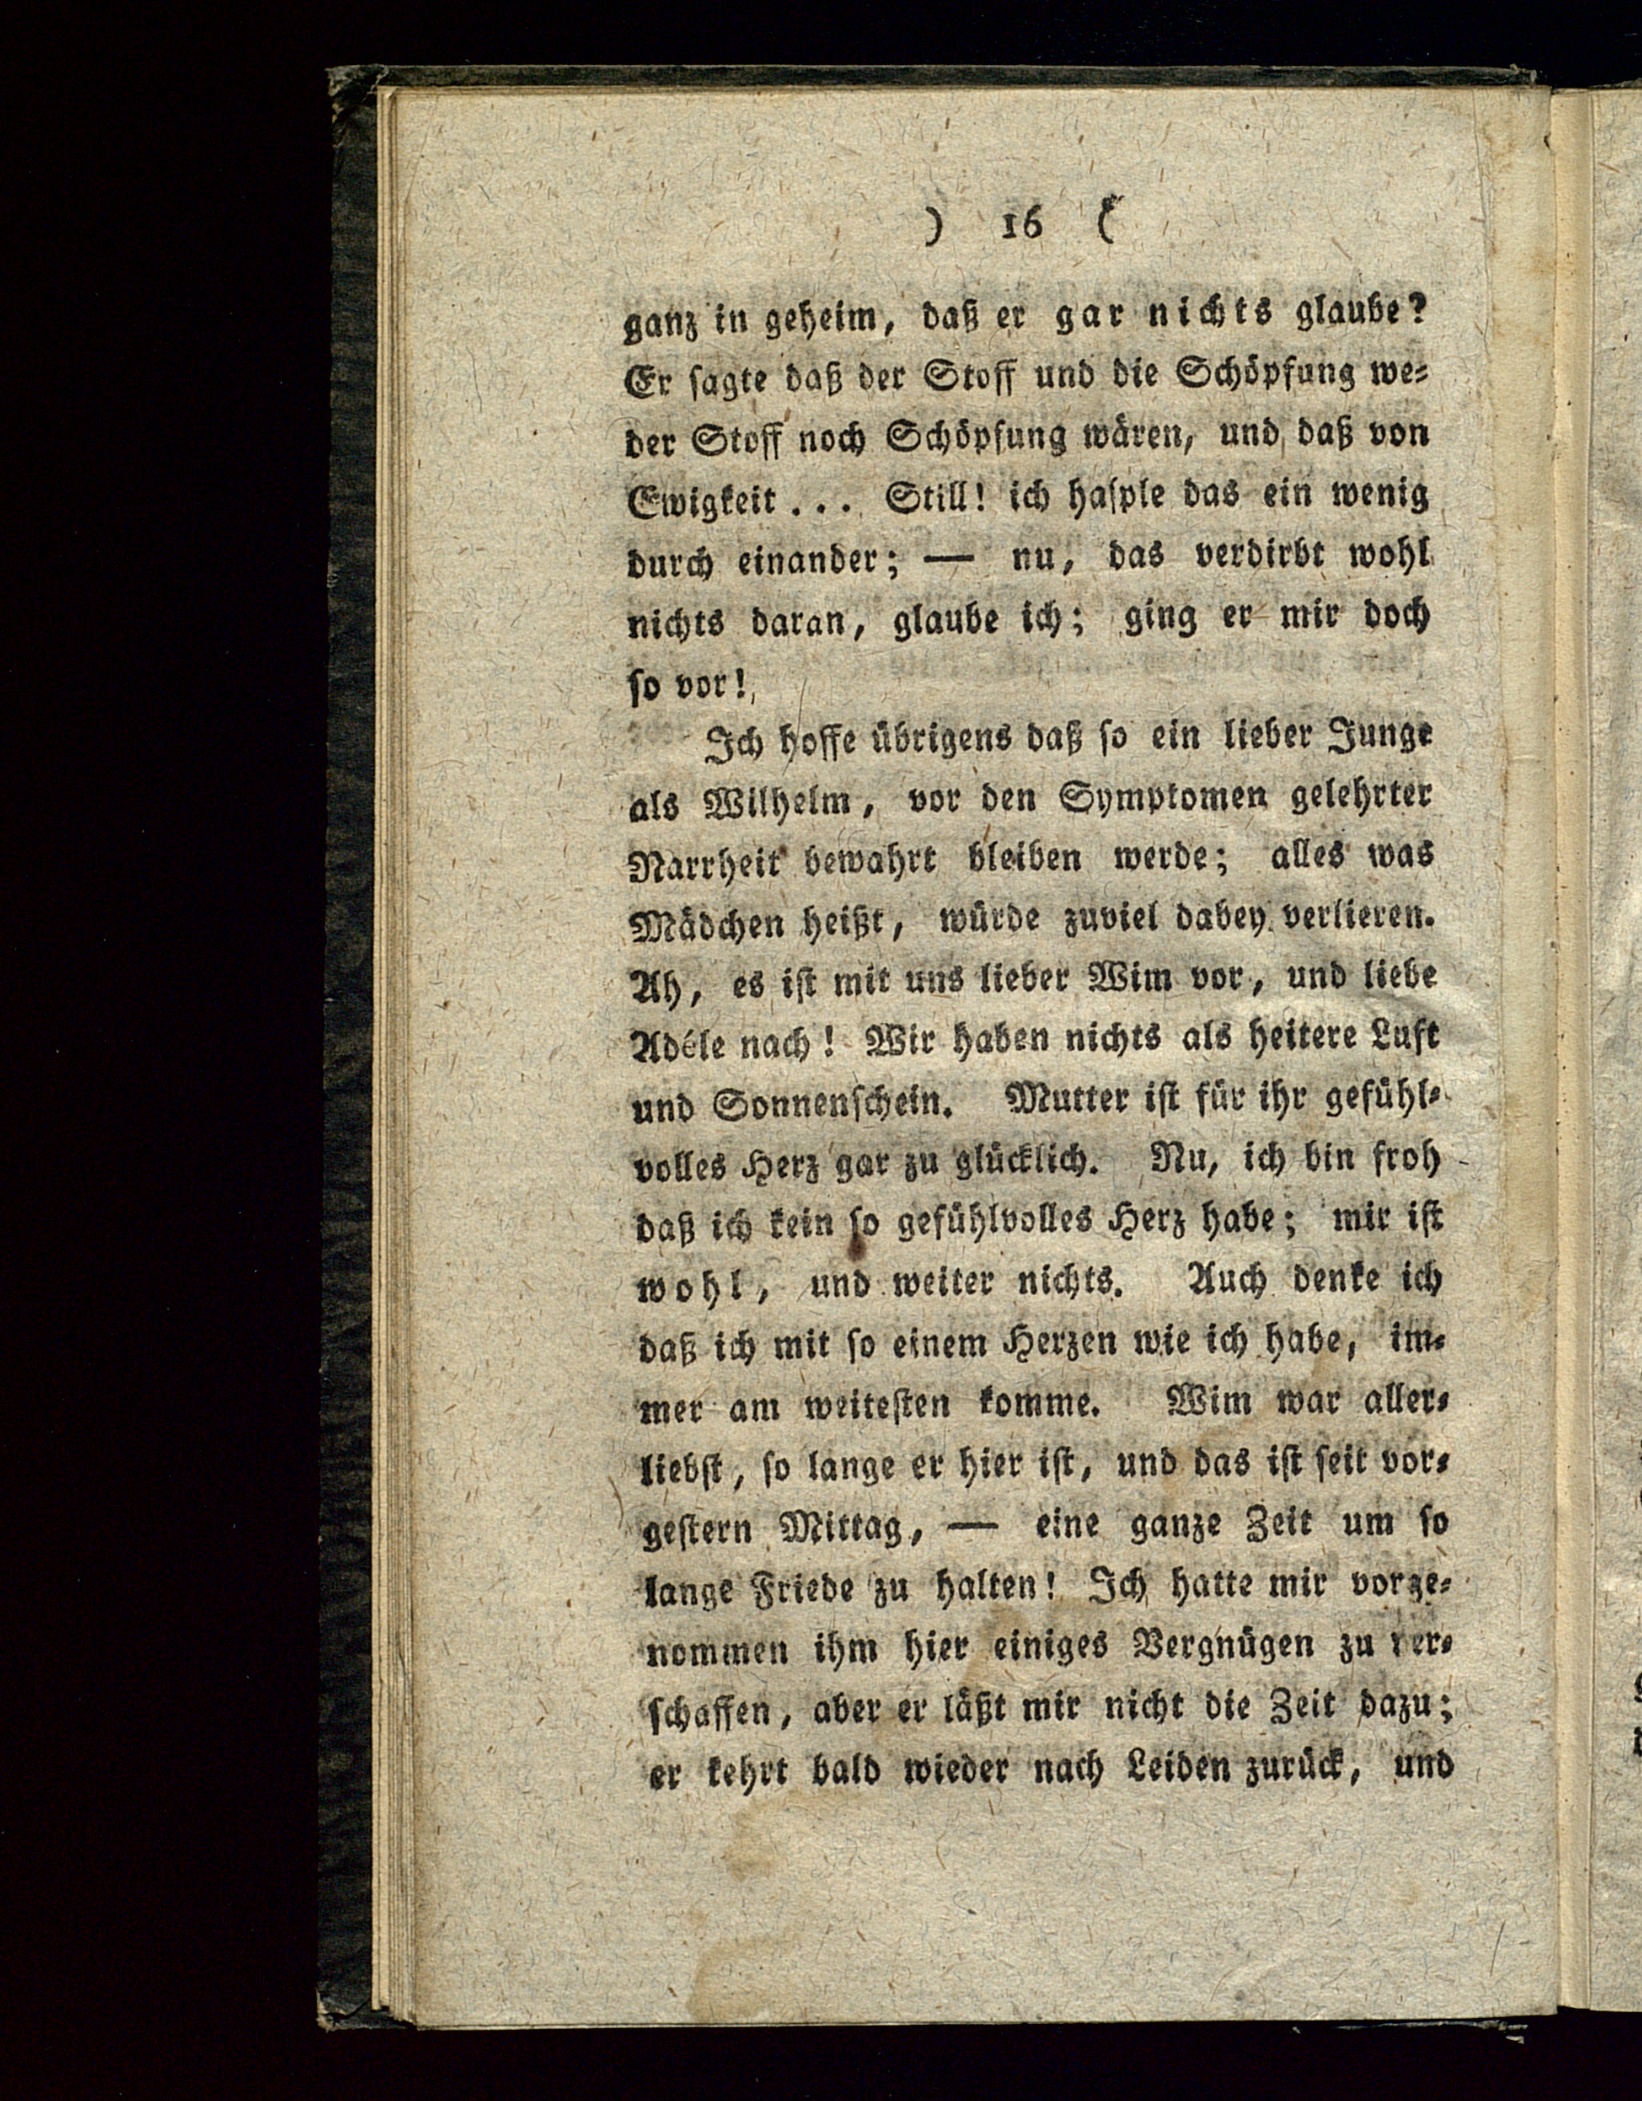 ) 16 (
ganz in geheim, daß er gar nichts glaube?
Er ſagte daß der Stoff und die Schöpfung we⸗
der Stoff noch Schöpfung wären, und daß von
Ewigkeit... Still! ich haſple das ein wenig
durch einander; — nu, das verdirbt wohl
nichts daran, glaube ich; ging er mir doch
ſo vor!
Ich hoffe übrigens daß ſo ein lieber Junge
als Wilhelm, vor den Symptomen gelehrter
Narrheit bewahrt bleiben werde; alles was
Mädchen heißt, würde zuviel dabey verlieren.
Ah, es iſt mit uns lieber Wim vor, und liebe
Adéle nach! Wir haben nichts als heitere Luft
und Sonnenſchein. Mutter iſt für ihr gefühl⸗
volles Herz gar zu glücklich. Nu, ich bin froh
daß ich kein ſo gefühlvolles Herz habe; mir iſt
wohl, und weiter nichts. Auch denke ich
daß ich mit ſo einem Herzen wie ich habe, im⸗
mer am weiteſten komme. Wim war aller⸗
liebſt, ſo lange er hier iſt, und das iſt ſeit vor⸗
geſtern Mittag, — eine ganze Zeit um ſo
lange Friede zu halten! Ich hatte mir vorge⸗
nommen ihm hier einiges Vergnügen zu ver⸗
ſchaffen, aber er läßt mir nicht die Zeit dazu;
er kehrt bald wieder nach Leiden zurück, und